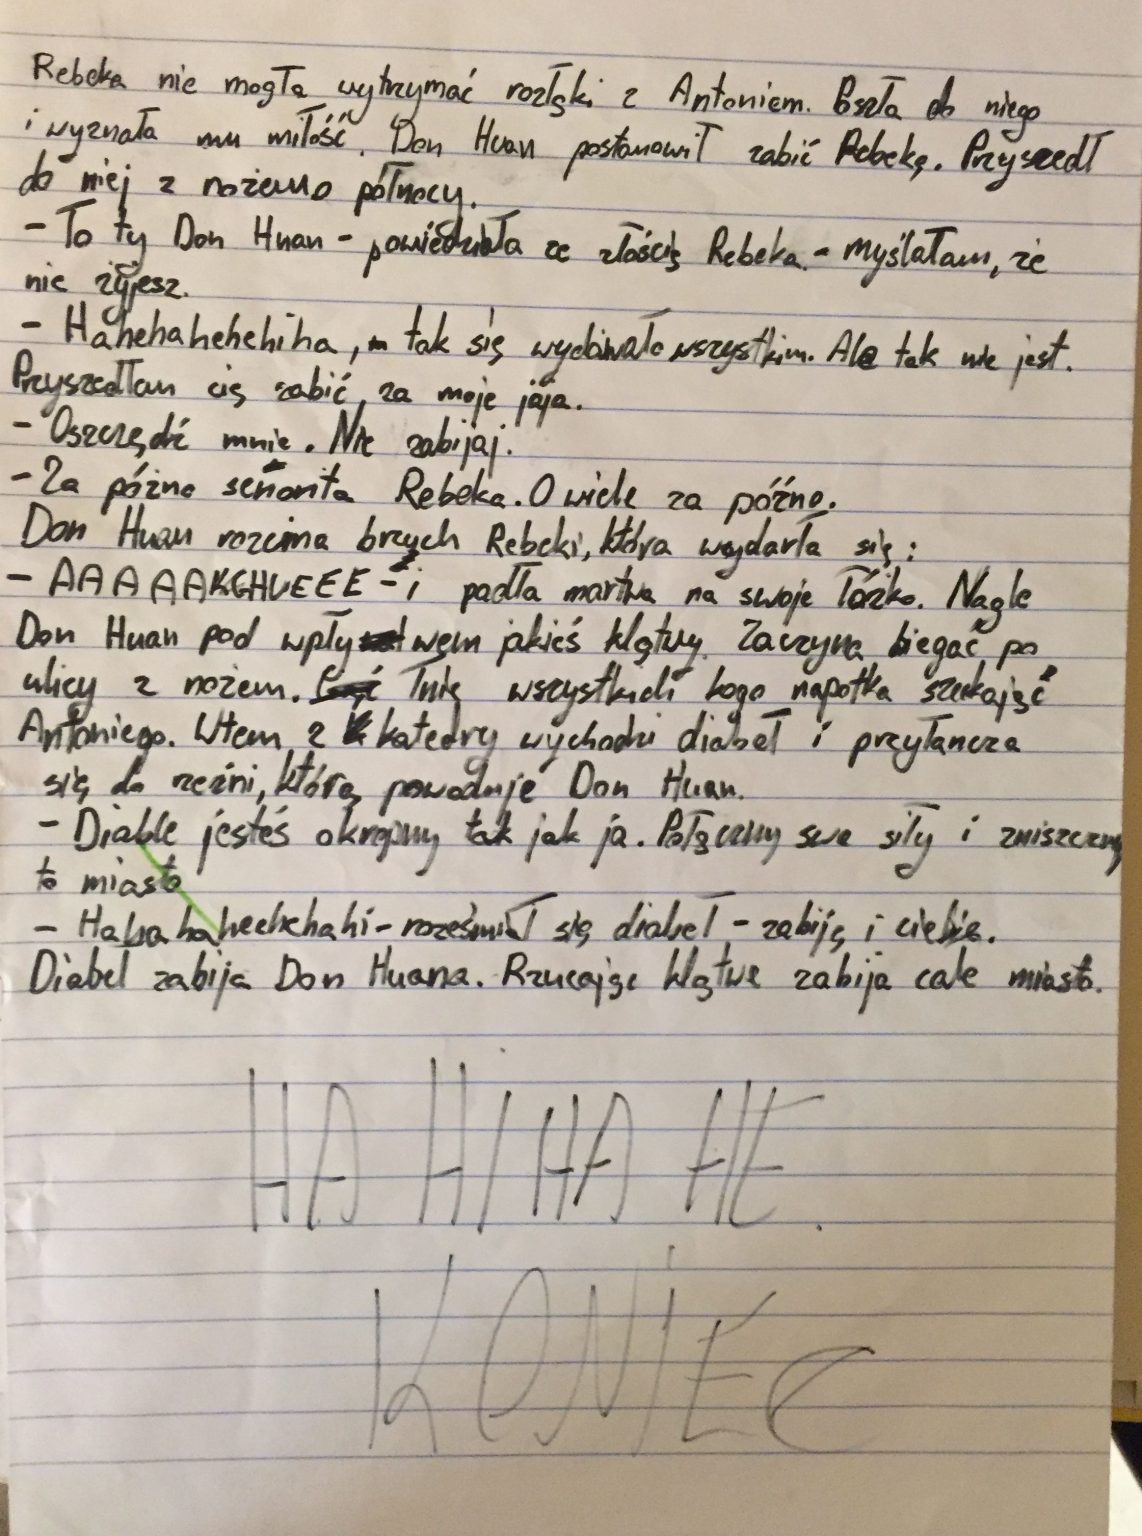 Rebeka nie mogła wytrzymać rozłąki z Antoniem. Poszła do niego
i wyznała mu miłość. Don Huan postanowił zabić Rebekę. Przyszedł
do niej z nożem o północy.
- To ty Don Huan - powiedziała ze złością Rebeka. - Myślałam, że
nie żyjesz.
- Hahehahehehiha, tak się wydawało wszystkim. Ale tak nie jest.
Przyszedłam cię zabić, za moje jaja.
- Oszczędź mnie. Nie zabijaj.
- Za późno señorita Rebeka. O wiele za późno.
Don Huan rozcina brzuch Rebeki, która wydarła się:
- AAAAAKGHUEEE - i padła martwa na swoje łóżko. Nagle
Don Huan pod wpływem jakieś klątwy. Zaczyna biegać po
ulicy z nożem. Tnie wszystkich kogo napotka szukająć
Antoniego. Wtem z katedry wychodzi diabeł i przyłancza
się do rzeźni, którą powoduje Don Huan.
- Diable jesteś okrojny tak jak ja. Połączmy swe siły i zniszczmy
to miasto
- Hahahaheehehahi - roześmiał się diabeł - zabiję i ciebie.
Diabel zabija Don Huana. Rzucając klątwę zabija całe miasto.
HA HI HA HE.
KONIEC